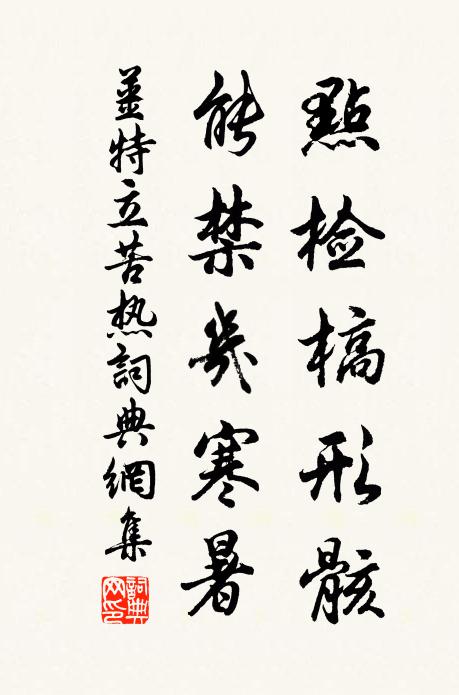 點檢槁形骸
能禁幾寒暑
姜特立苦热詞典網集
詞典網印